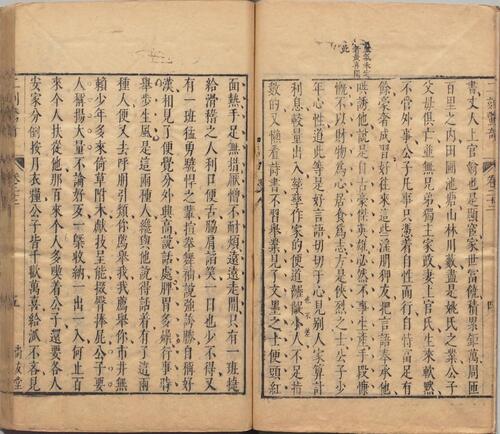 書丈人上官翁也是顯宦家世富饒積累鉅萬周匝
百里之內田圃池塘山林川藪盡是姚氏之業公子
父母俱亡並無兄弟獨主家政妻上官氏生來軟默
不管外事公子凡事只憑着自性而行自恃富足有
餘豪奢成習好往來這些淫朋狎友把言語奉承他
哄誘他說是自古豪傑英雄必然不事生產手段慷
慨不以財物為心居食為志方是俠烈之士公子少
年心性道此等是好言語切切于心見別人家算計
利息較量出入孳孳作家的便道齷齪小人不足指
數的又懶看詩書不習舉業見了文墨之士便頭紅
面熱手足無措厭憎不耐煩遠遠走開只有一班捷
給滑稽之人利口便舌脅肩諂笑一日也少不得又
有一班猛勇驍悍之輩揎拳舞袖說強誇勝自稱好
漢相見了便覺分外興高說話處脾胃多燥行事時
舉步生風是這兩種人纔與他說得話着有了這兩
種人便又去呼朋引類你薦舉我我薦舉你市井無
賴少年多來倚草附木獻技呈能掇臀捧屁公子要
人稱揚大量不論好歹一槩收納一出一入何止百
來個人扶從他那百來個人多喫着公子還要各人
安家分例按月衣糧公子皆千歡萬喜給派不吝見
尚友堂